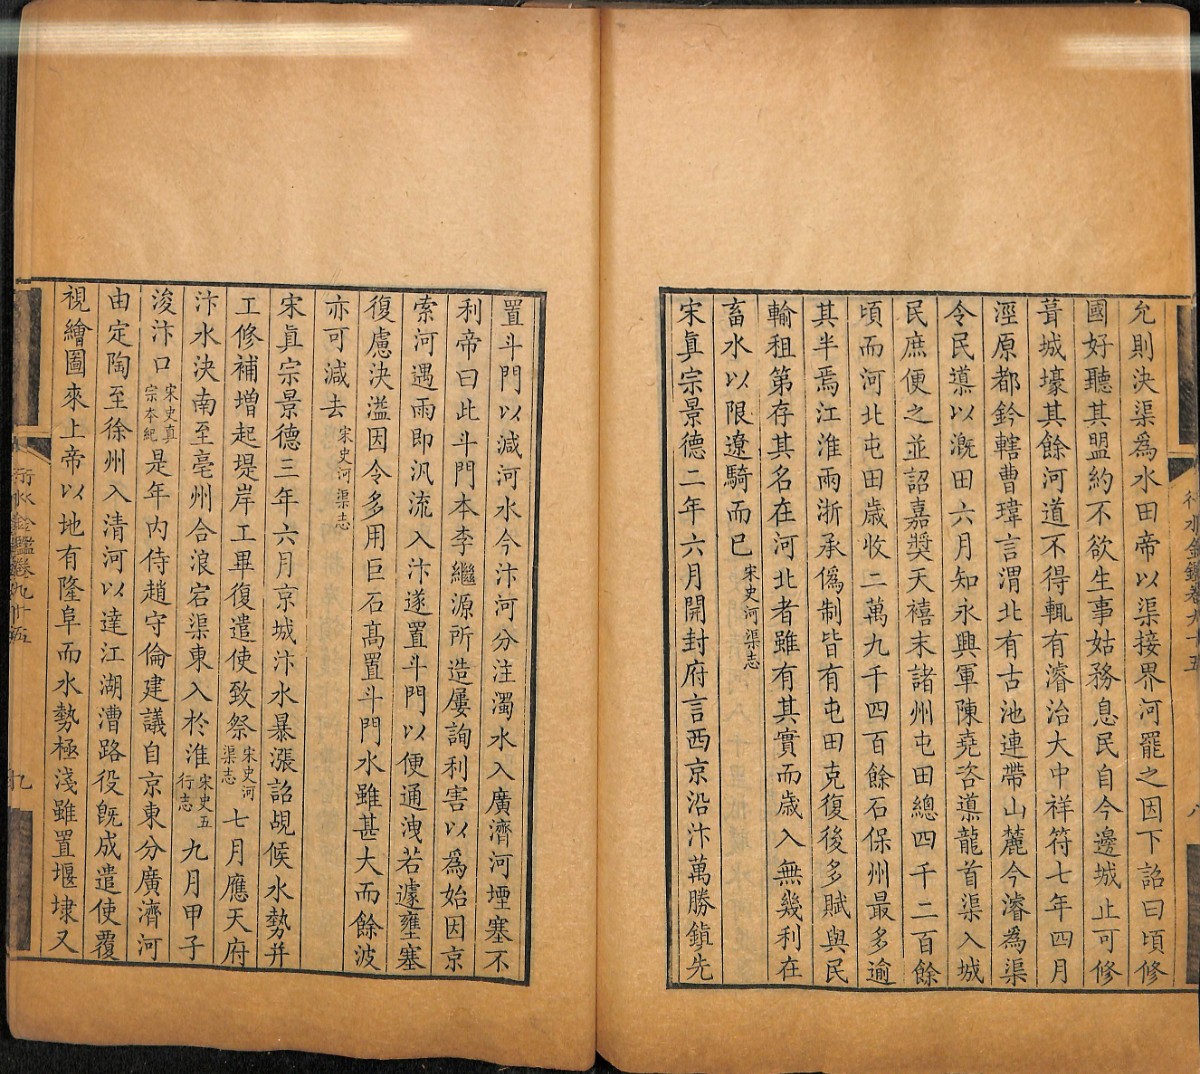 允則決渠為水田帝以渠接界河罷之因下詔曰頃修
國好聽其盟約不欲生事姑務息民自今邊城止可修
葺城壕其餘河道不得輒有濬治大中祥符七年四月
涇原都鈐轄曹瑋言渭北有古池連帶山麓今濬為渠
令民導以溉田六月知永興軍陳堯咨導龍首渠入城
民庶便之並詔嘉奬天禧末諸州屯田總四千二百餘
頃而河北屯田歲收二萬九千四百餘石保州最多逾
其半焉江淮兩浙承僞制皆有屯田克復後多賦與民
輸租第存其名在河北者雖有其實而歲入無幾利在
畜水以限遼騎而已宋史河渠志
宋眞宗景德二年六月開封府言西京沿汴萬勝鎮先
行水金鑑卷九十五
八
置斗門以減河水今汴河分注濁水入廣濟河堙塞不
利帝曰此斗門本李繼源所造屢詢利害以爲始因京
索河遇雨即汎流入汴遂置斗門以便通洩若遽壅塞
復慮決溢因令多用巨石高置斗門水雖甚大而餘波
亦可減去宋史河渠志
宋眞宗景德三年六月京城汴水暴漲詔覘候水勢并
工修補增起堤岸工畢復遣使致祭宋史河渠志七月應天府
汴水決南至亳州合浪宕渠東入於淮宋史五行志九月甲子
浚汴口宋史真宗本紀是年內侍趙守倫建議自京東分廣濟河
由定陶至徐州入清河以達江湖漕路役旣成遣使覆
視繪圖來上帝以地有隆阜而水勢極淺雖置堰埭又
行水金鑑卷九十五
九